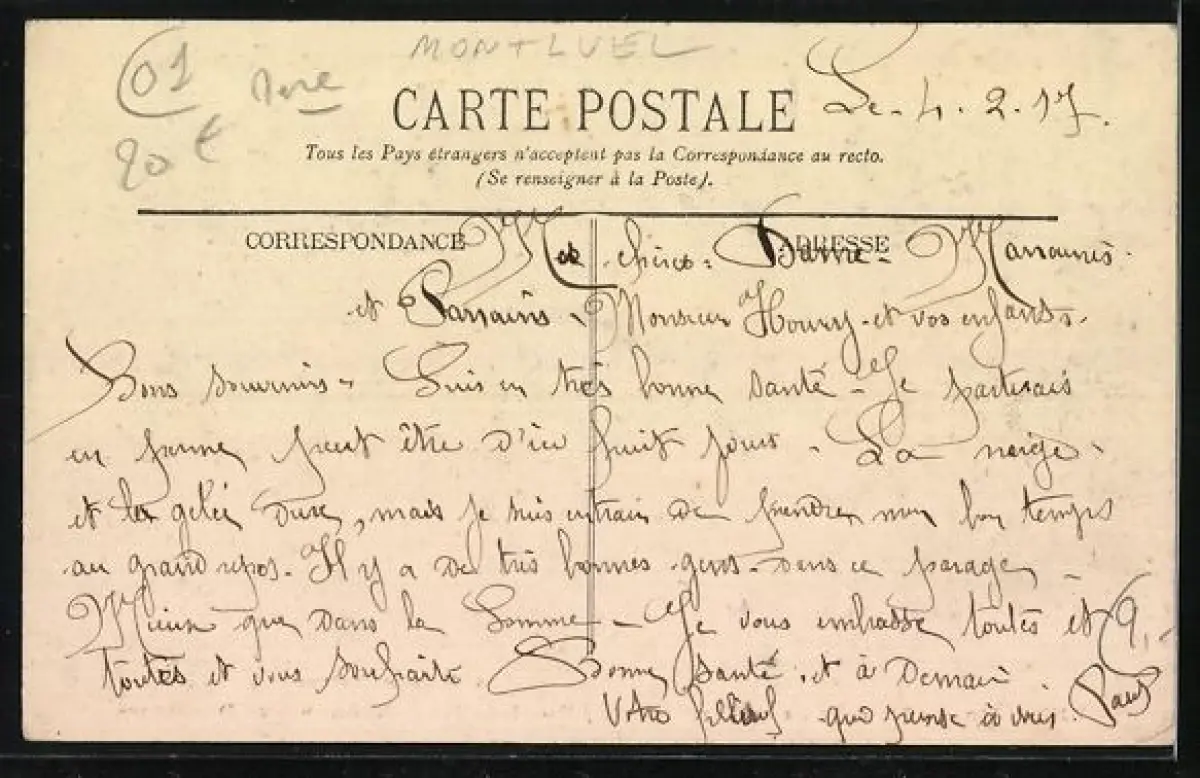 MONTLUEL
01
20€
CARTE POSTALE
Le 4.2.17.
Tous les Pays étrangers n'acceptent pas la Correspondance au recto.
(Se renseigner à la Poste).
CORRESPONDANCE
ADRESSE
Mes chères Dame Marraines
et Parrains, Monsieur et vos enfants.
Bons souvenirs. Suis en très bonne santé. Je partirais
en peut être d'ici huit jours. La neige
et la gelée dure, mais je suis entrain de prendre mon bon temps
au grand repos. Il y a de très bonnes gens dans ce parage
Mieux que dans la Somme. Je vous embrasse toutes et
toutes et vous souhaite Bonne santé et à Demain.
Votre filleul que pense à vous. Paul